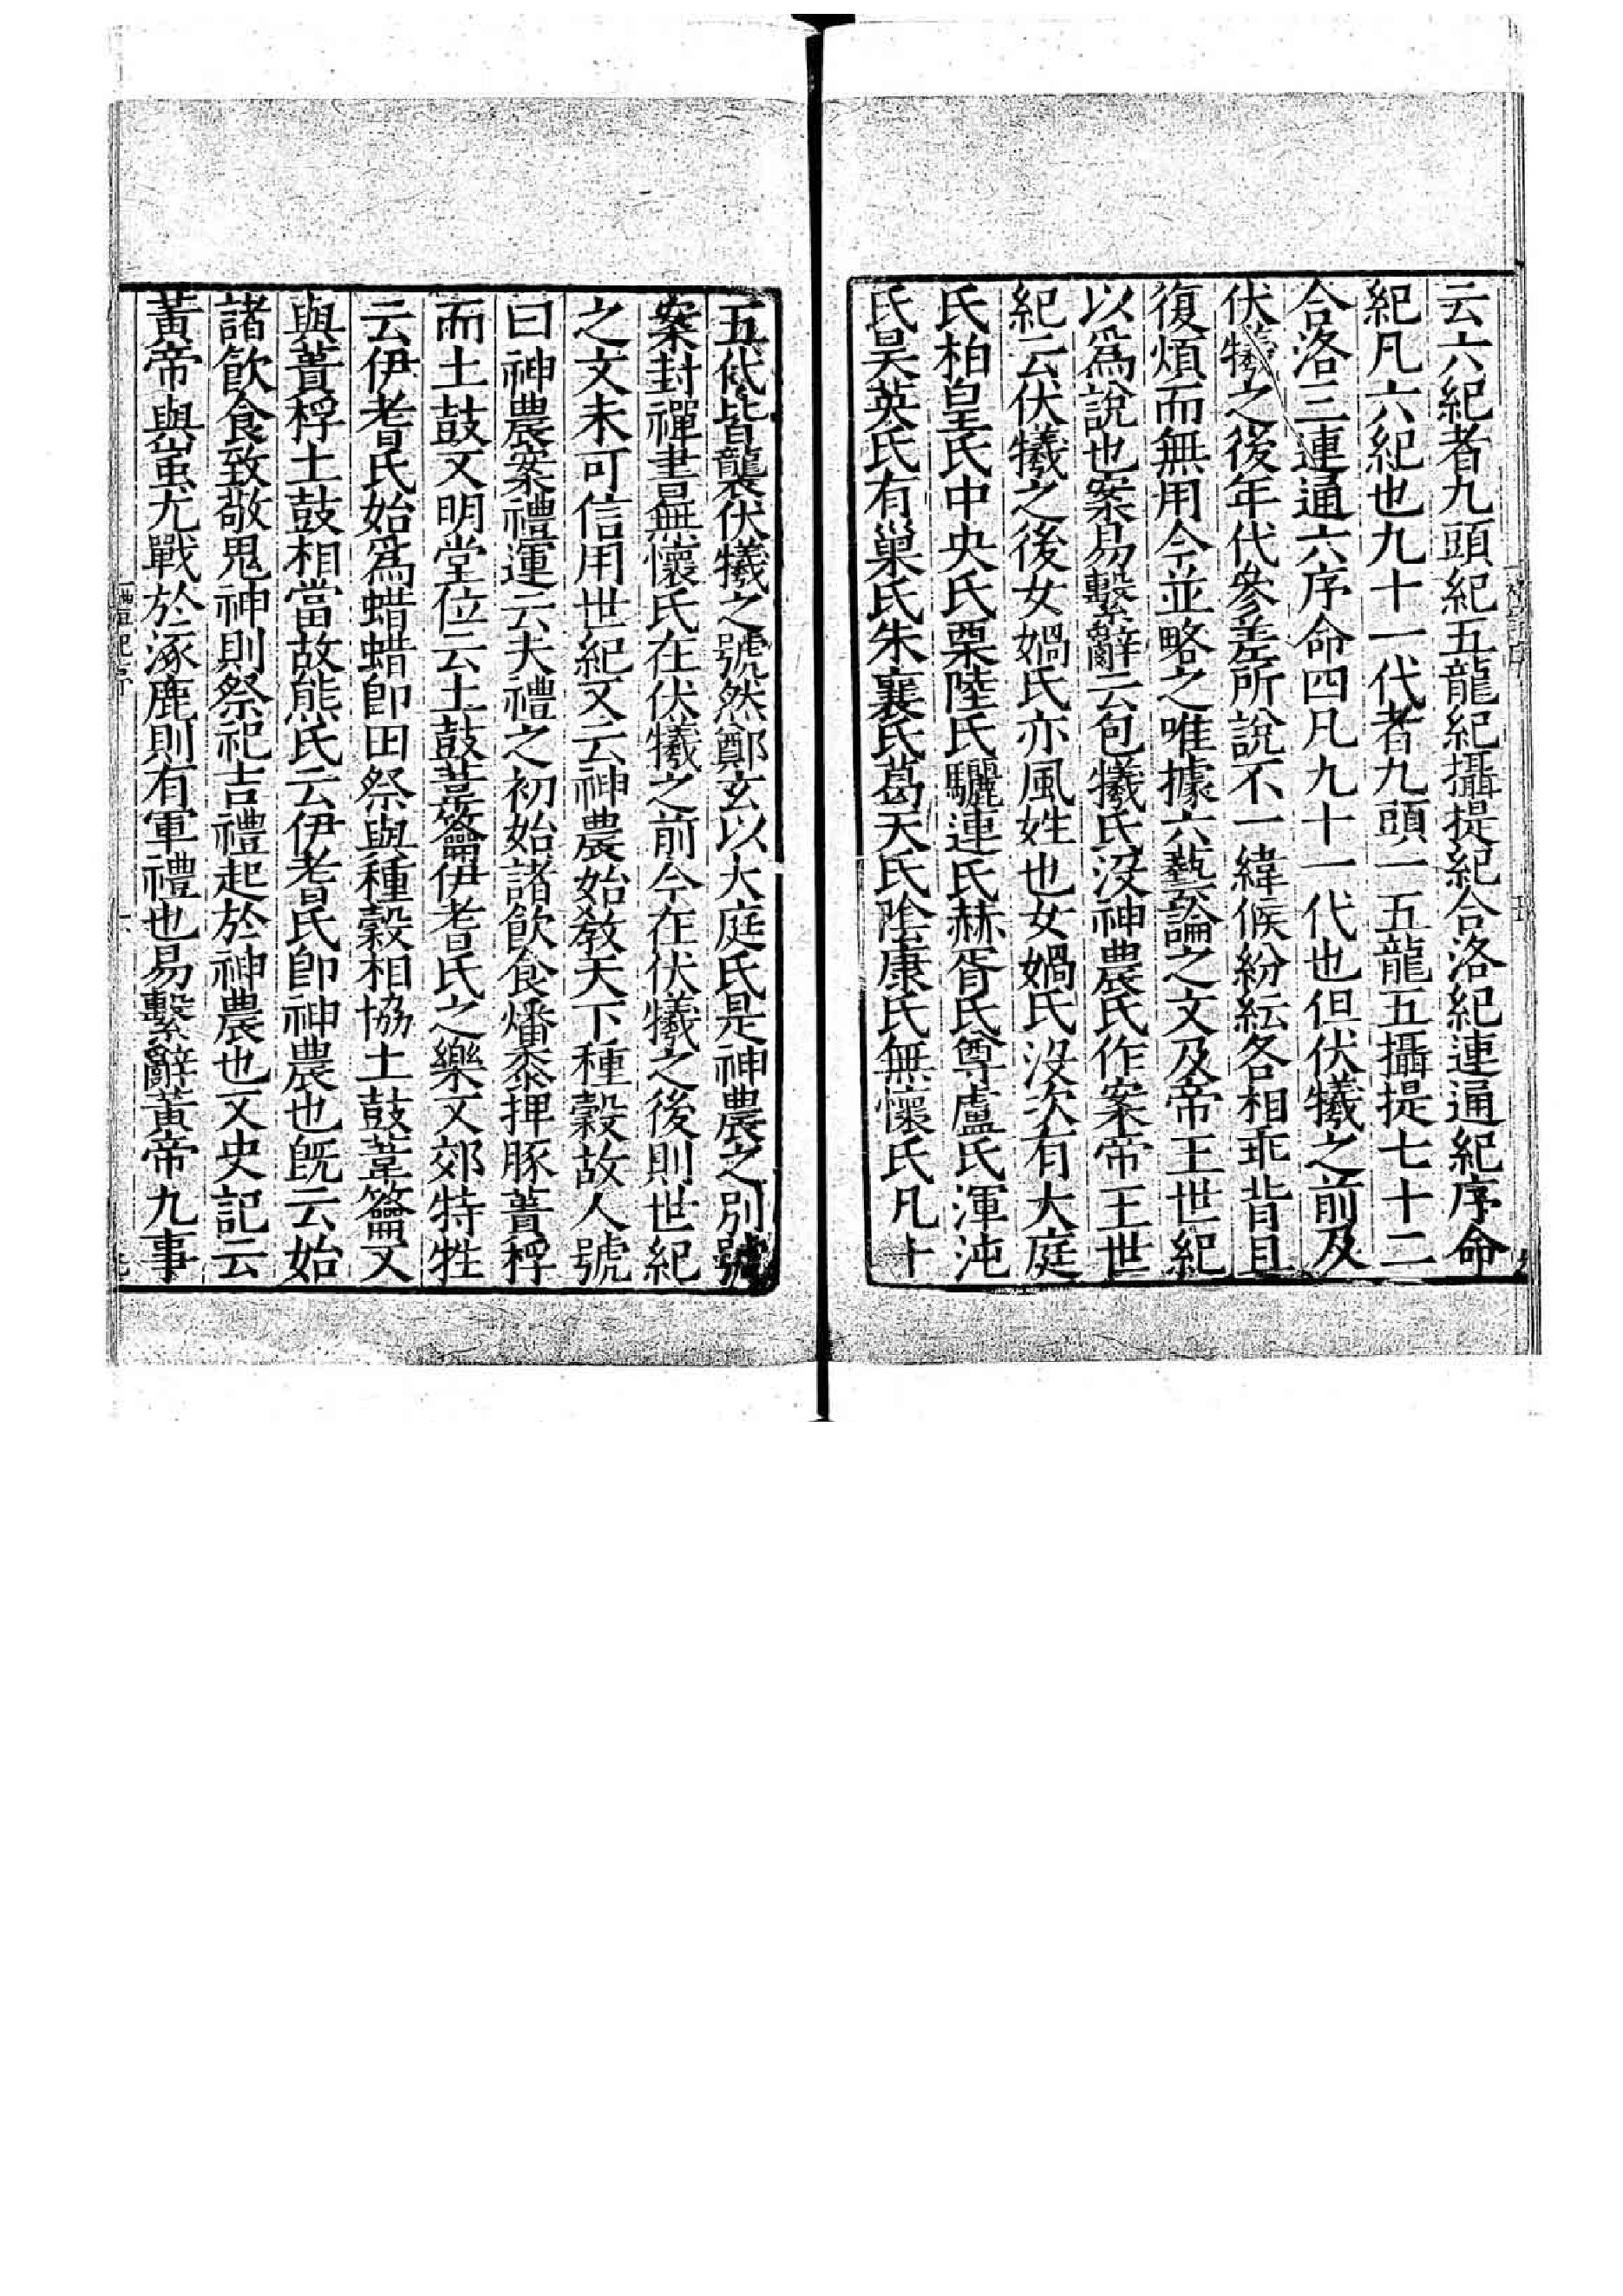 云六紀者九頭紀五龍紀攝提紀合洛紀連通紀序命
紀凡六紀也九十一代者九頭一五龍五攝提七十二
合洛三連通六序命四凡九十一代也但伏犧之前及
伏犧之後年代參差所說不一緯候紛紜各相乖背且
復煩而無用今並略之唯據六藝論之文及帝王世紀
以爲說也案易繫辭云包犧氏沒神農氏作案帝王世
紀云伏犧之後女媧氏亦風姓也女媧氏沒次有大庭
氏柏皇氏中央氏栗陸氏驪連氏赫胥氏尊盧氏渾沌
氏昊英氏有巢氏朱襄氏葛天氏陰康氏無懷氏凡十
五代皆襲伏犧之號然鄭玄以大庭氏是神農之別號
案封禪書無懷氏在伏犧之前今在伏犧之後則世紀
之文未可信用世紀又云神農始教天下種穀故人號
曰神農案禮運云夫禮之初始諸飲食燔黍捭豚蕢桴
而土鼓又明堂位云土鼓葦籥伊耆氏之樂又郊特牲
云伊耆氏始爲蜡蜡卽田祭與種穀相協土鼓葦籥又
與蕢桴土鼓相當故熊氏云伊耆氏卽神農也旣云始
諸飲食致敬鬼神則祭祀吉禮起於神農也又史記云
黃帝與蚩尤戰於涿鹿則有軍禮也易繫辭黃帝九事